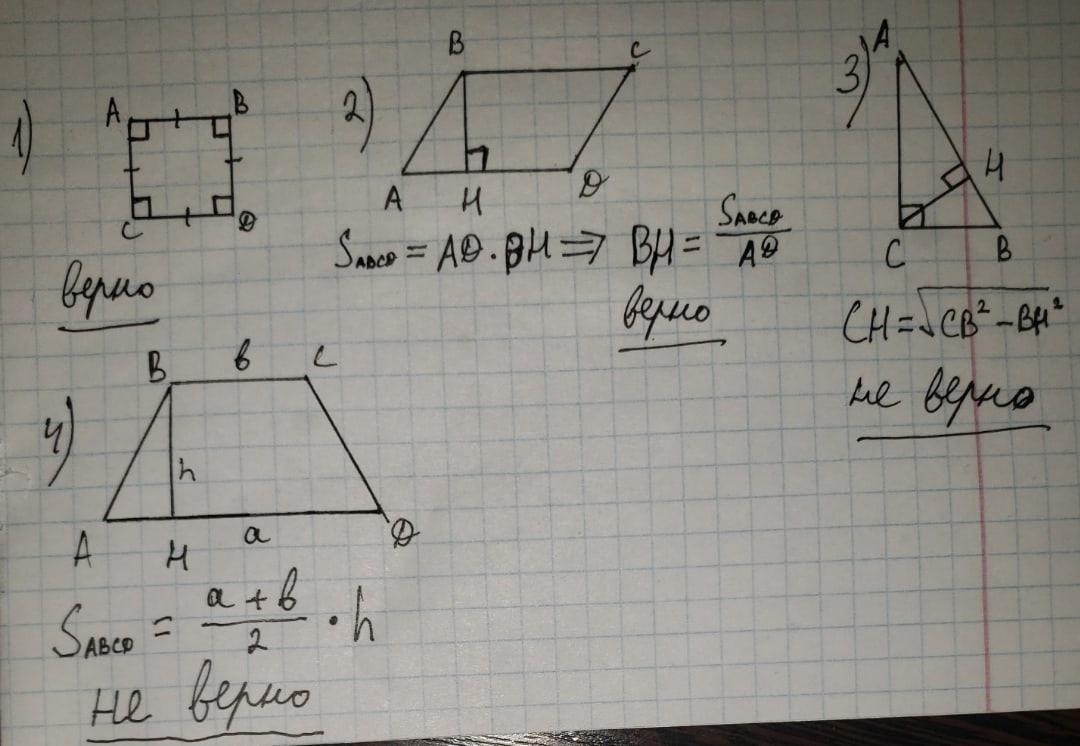 1)
A B
C D
верно
2)
B C
A H D
S ABCD = AD · BH => BH = S ABCD / AD
верно
3)
A
H
C B
CH = √CB² - BH²
не верно
4)
B в C
h
A H a D
S ABCD = a + в / 2 · h
не верно